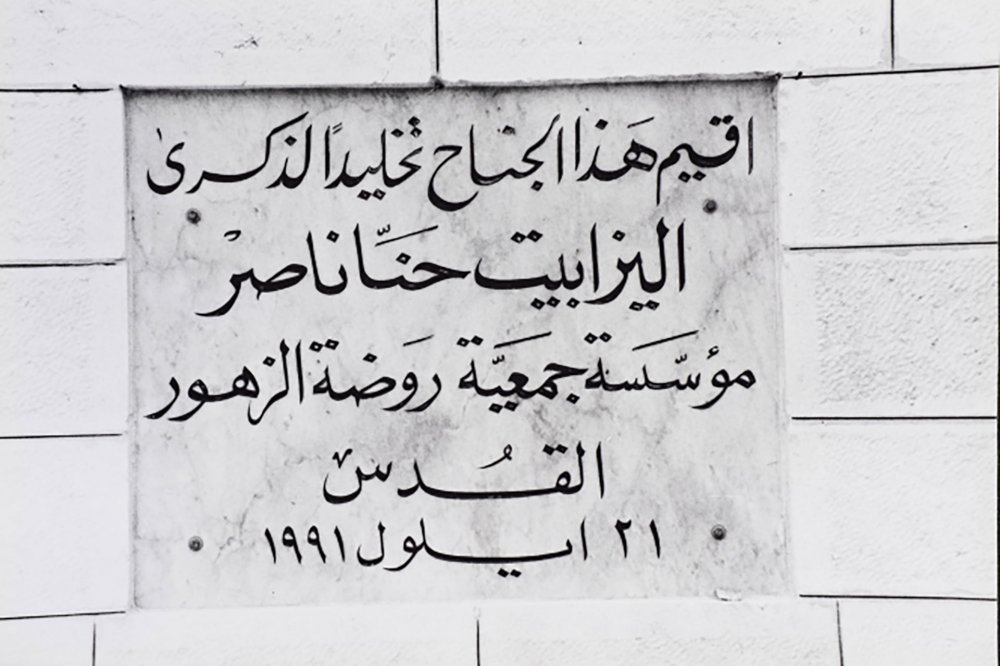 اقيم هَذا الجناح تخليدًا لذكرىٰ
اليزابيت حنَّا ناصر
مؤسّسَة جمَعيَّة رَوضة الزهور
القُدس
٢١ ايلول ١٩٩١